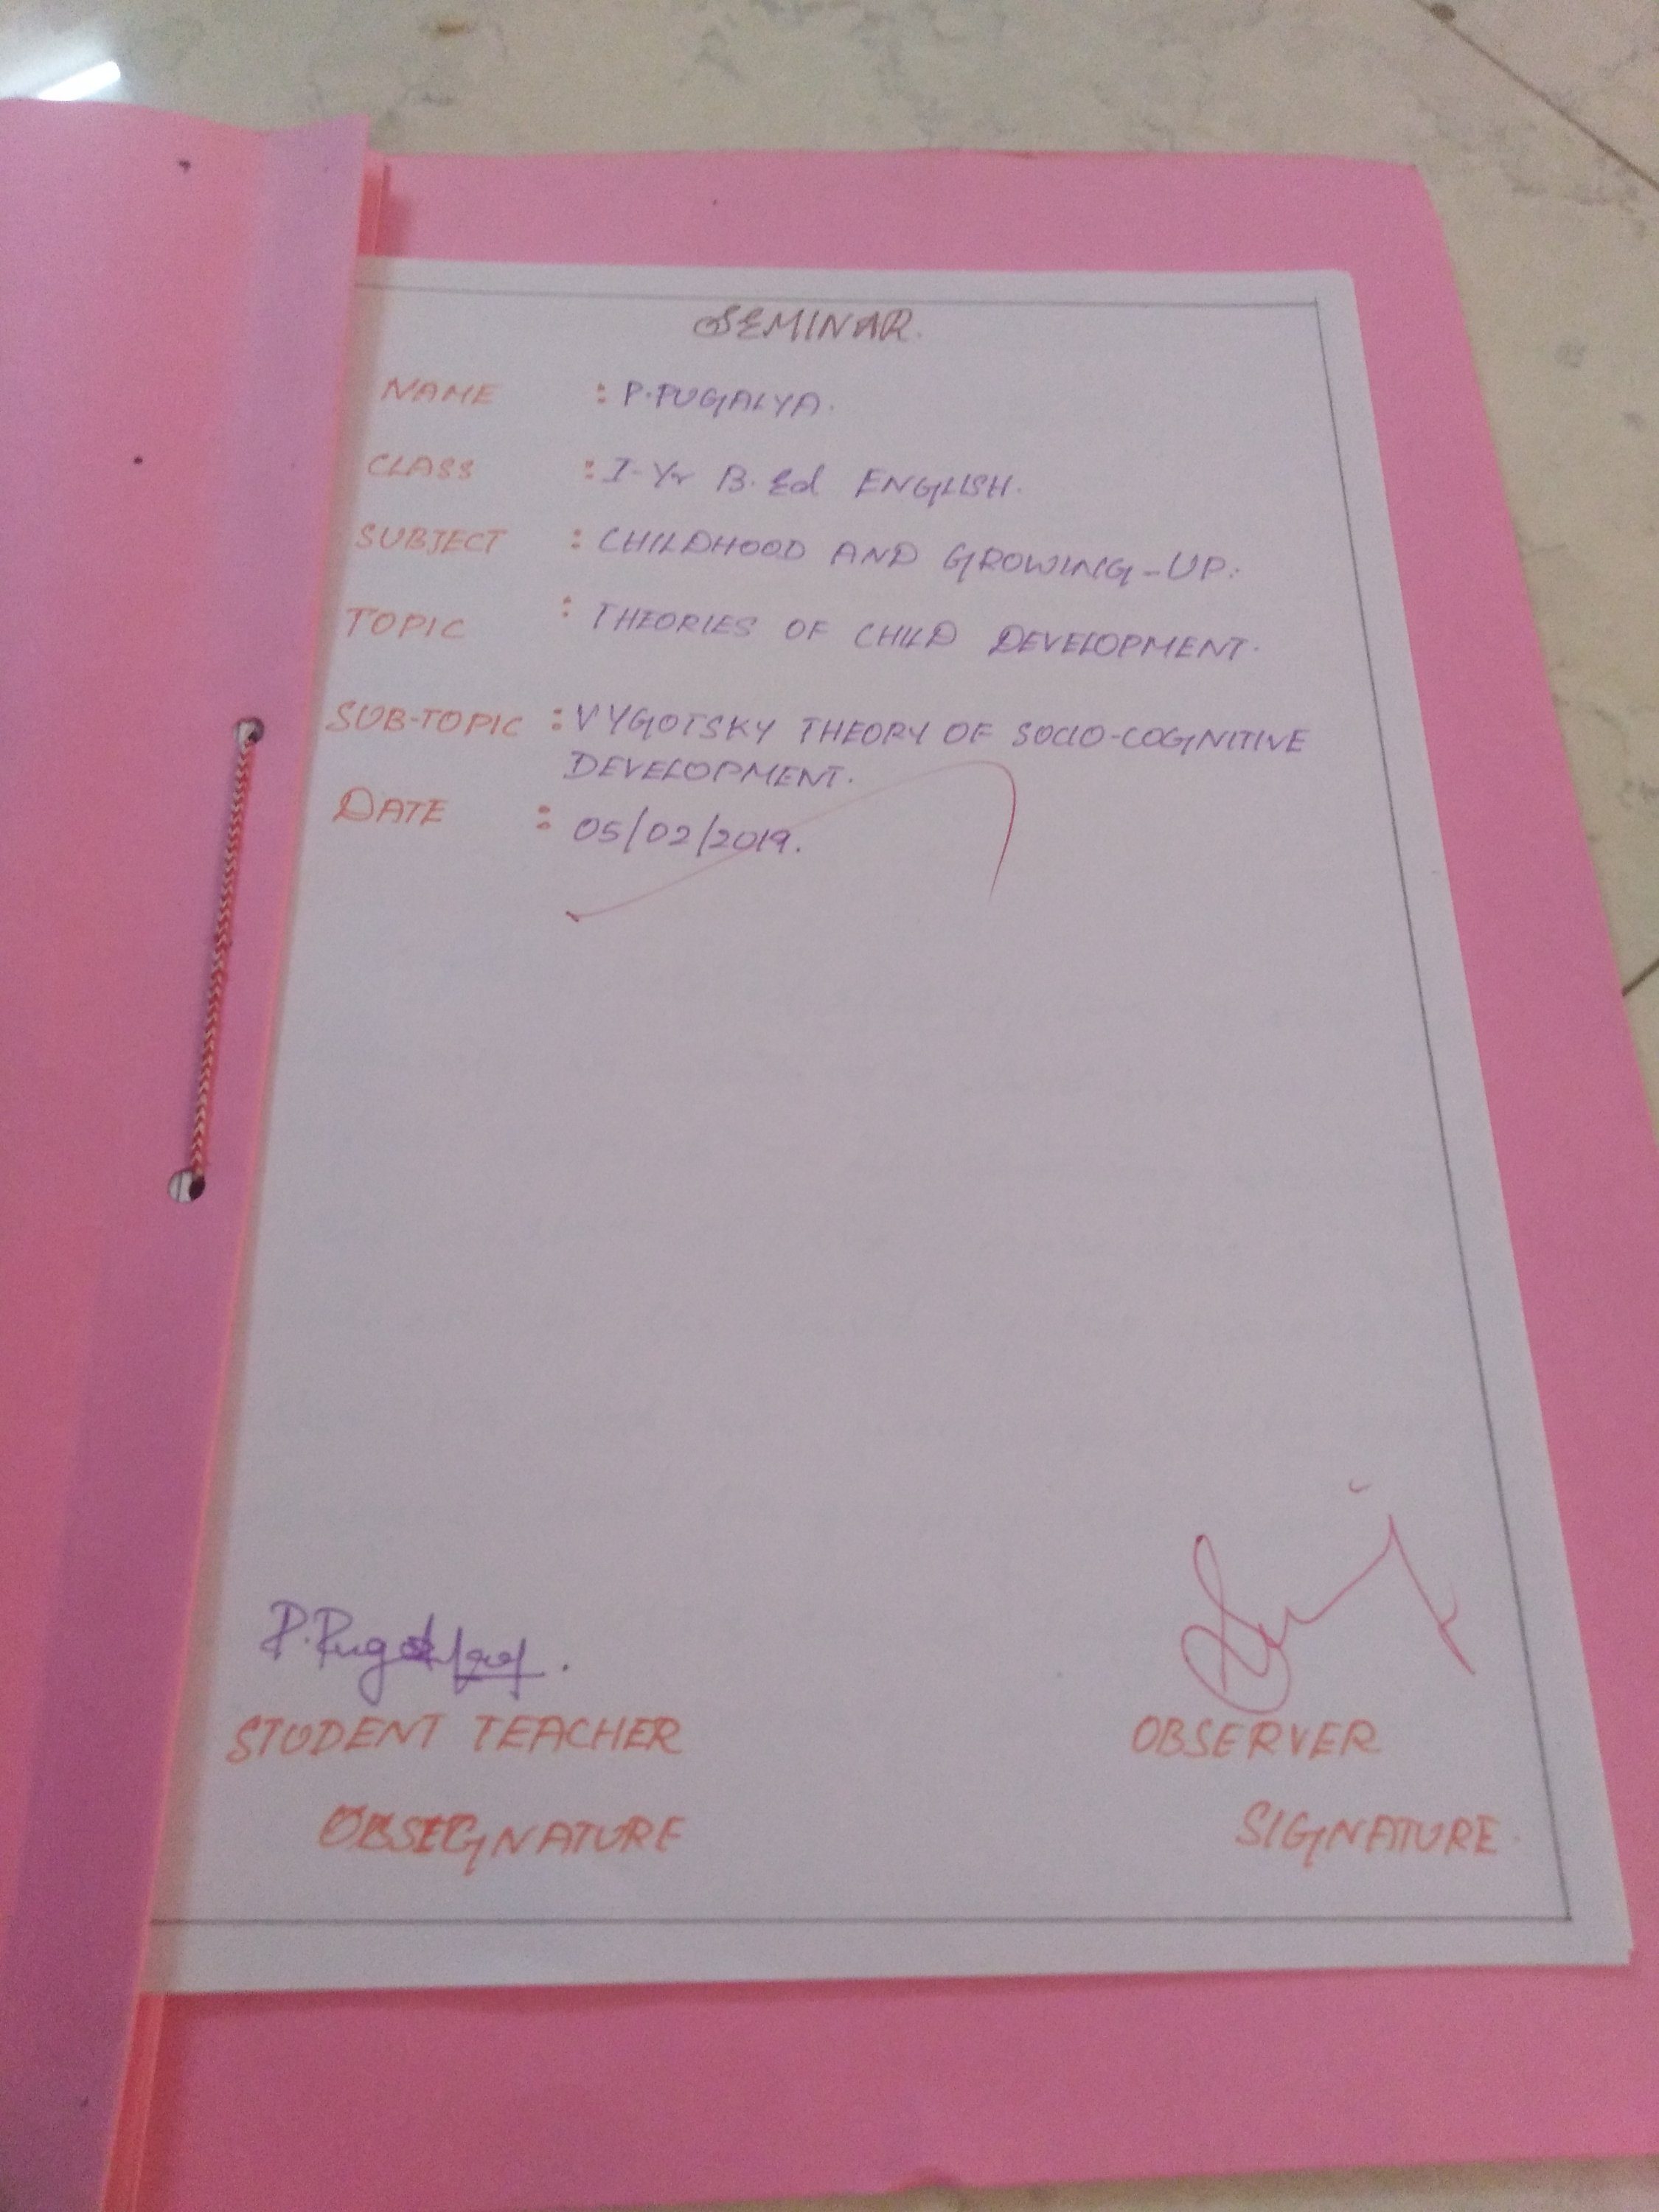 SEMINAR.
NAME : P.PUGALYA.
CLASS : I-Yr B.Ed ENGLISH.
SUBJECT : CHILDHOOD AND GROWING-UP.
TOPIC : THEORIES OF CHILD DEVELOPMENT.
SUB-TOPIC : VYGOTSKY THEORY OF SOCIO-COGNITIVE
DEVELOPMENT.
DATE : 05/02/2019.
STUDENT TEACHER OBSERVER
SIGNATURE SIGNATURE.